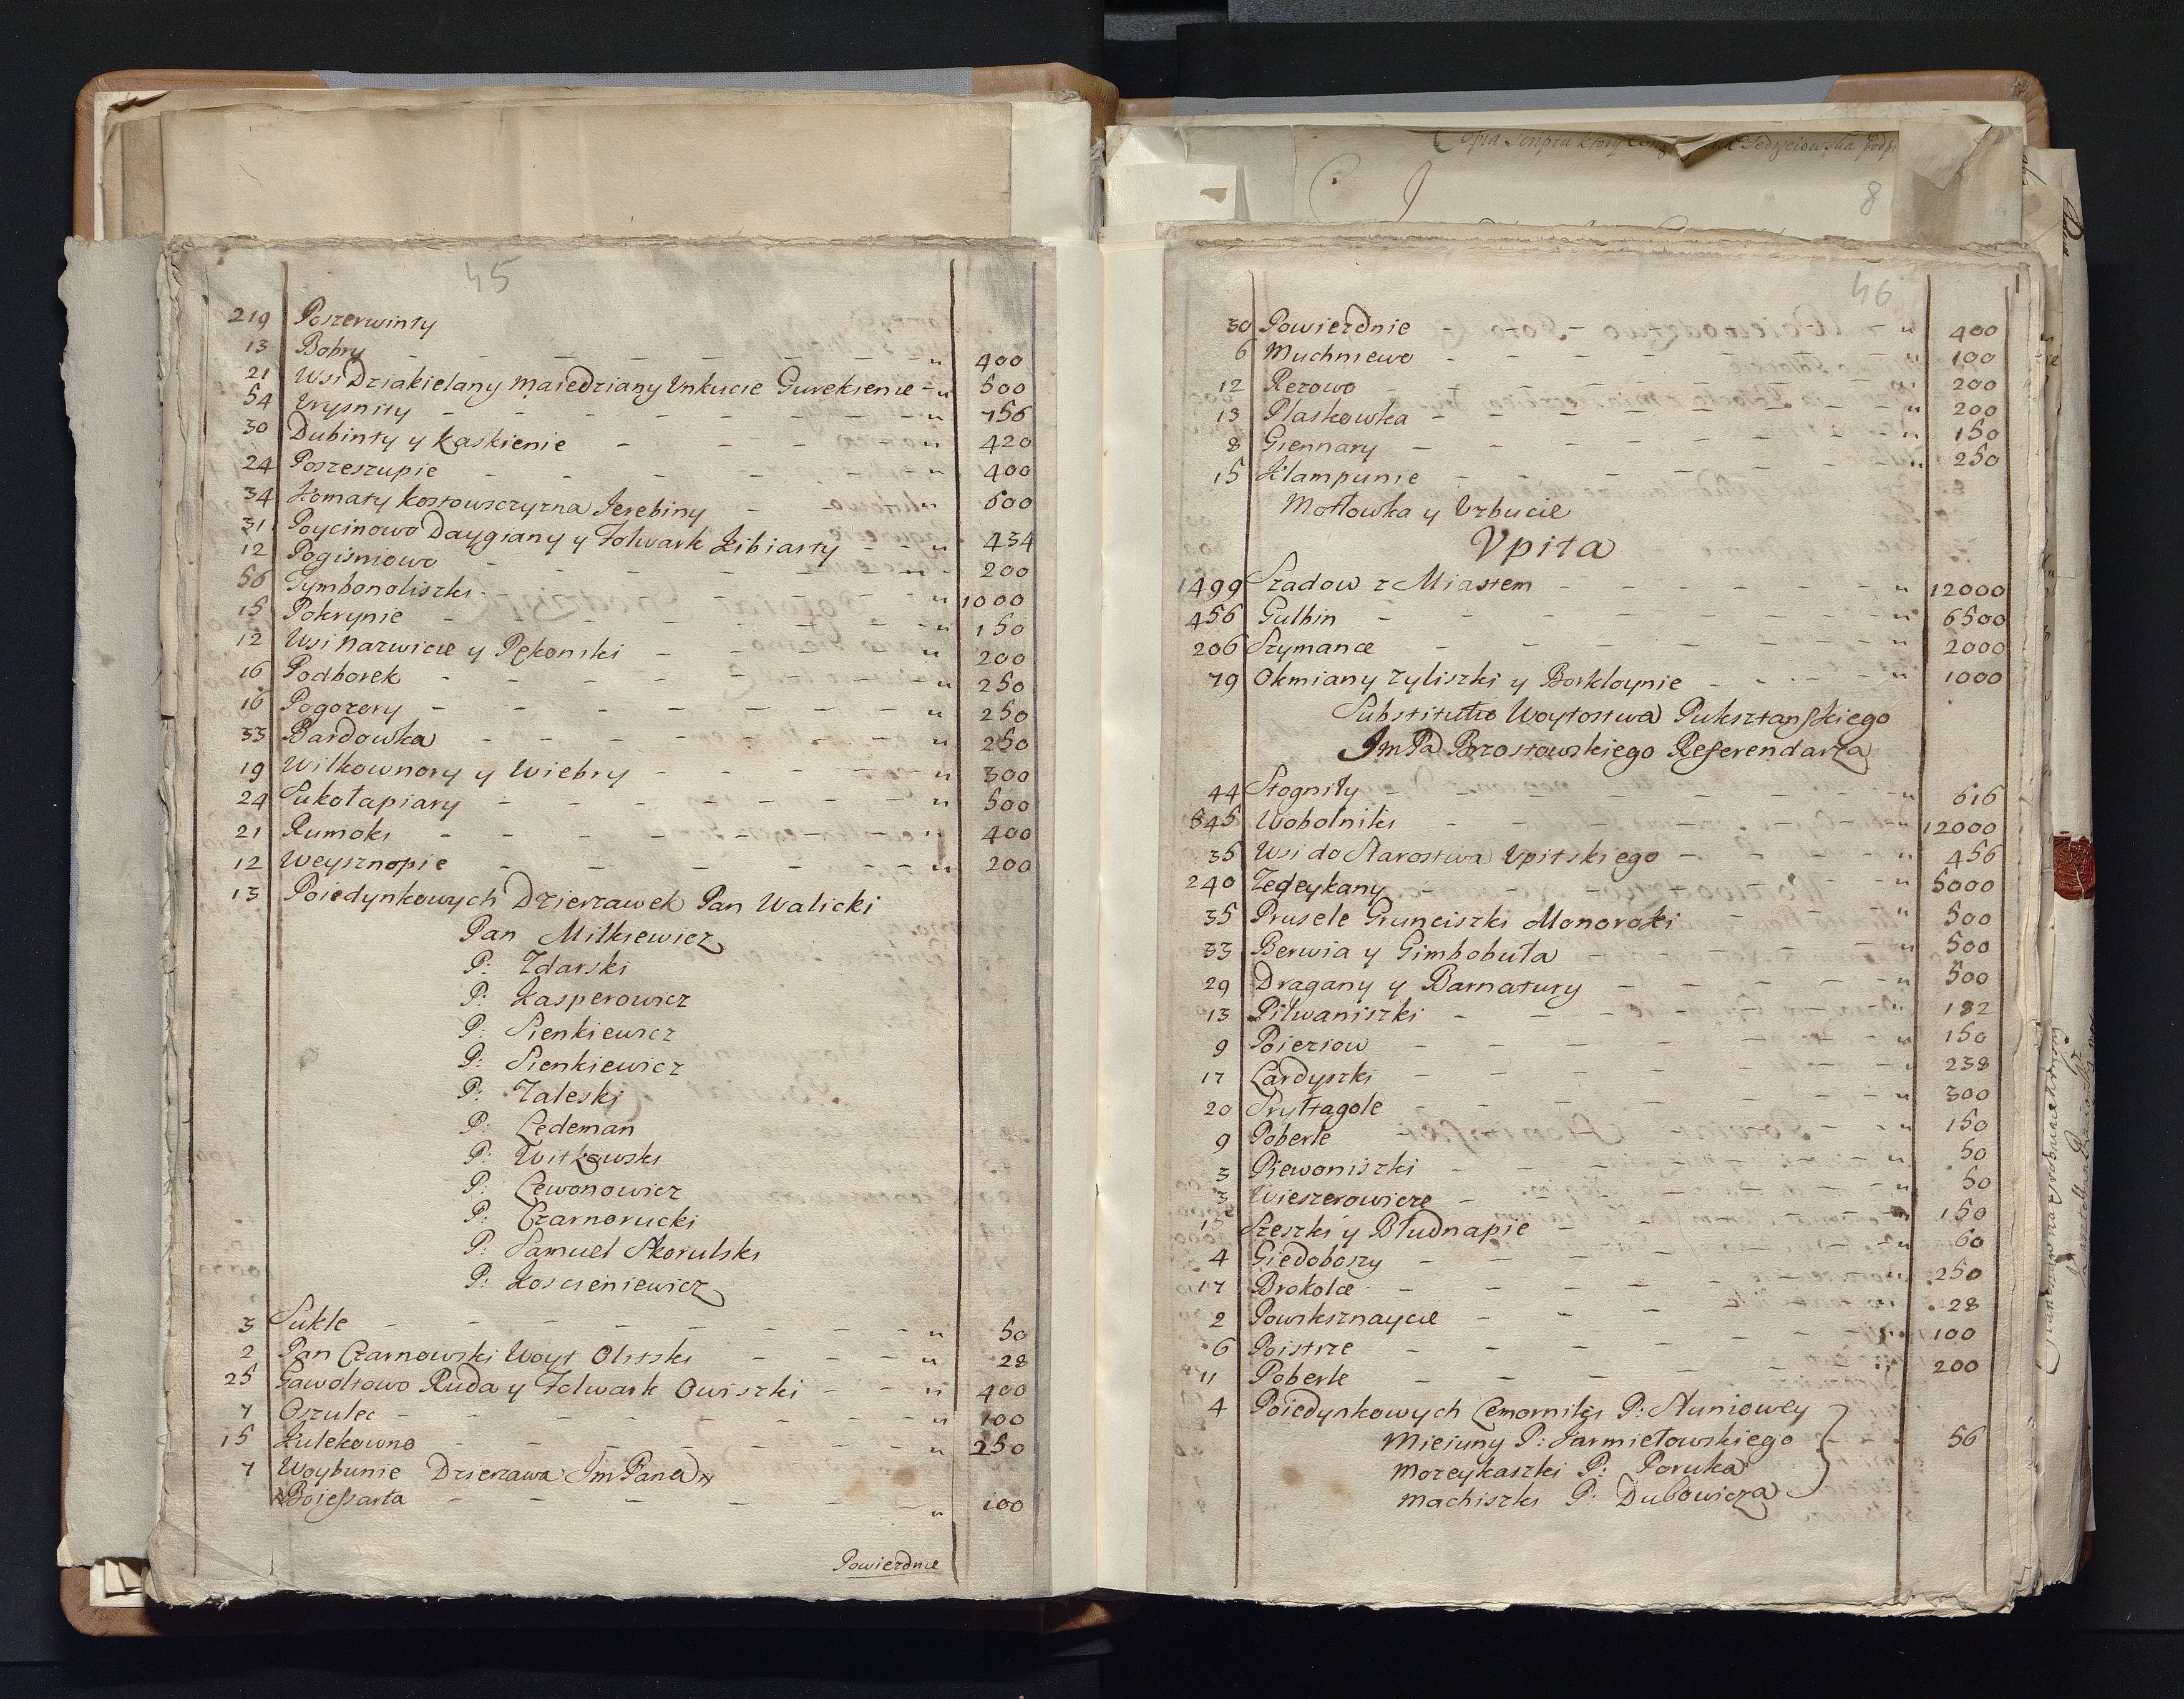 45
219 Poszerwinty
13 Bobry - - - - - - - - " 400
21 Wsi Dziakielany Maiedziany Unkucie Gureksenie - " 500
54 Urysnity - - - - - - - " 756
30 Dubinty y Kaskienie - - - - - " 420
24 Poszeszupie - - - - - - " 400
34 Łomaty Kostowsczyzna Jerebiny - - - " 600
31 Poycinowo Daygiany y Folwark Żibiarty - - - " 434
12 Pogiśniowo - - - - - - - " 200
56 Tymbonoliszki - - - - - - - " 1000
15 Pokrynie - - - - - - - " 150
12 Wsi Narwicie y Pękoniki - - - - - " 200
16 Podborek - - - - - - - " 250
16 Pogorary - - - - - - - " 250
33 Bardowka - - - - - - - " 250
19 Wilkownory y Wiebry - - - - - " 300
24 Sukołapiary - - - - - - - " 500
21 Rumoki - - - - - - - " 400
12 Weysznopie - - - - - - " 200
13 Poiedynkowych Dzierzawek Pan Walicki
Pan Milkiewicz
P: Zdarski
P: Kasperowicz
P: Sienkiewicz
P: Sienkiewicz
P: Zaleski
P: Ledeman
P: Witkowski
P: Lewonowicz
P: Czarnorucki
P: Samuel Skorulski
P: Koscieniewicz
3 Sukle - - - - - - - - " 50
2 Pan Czarnowski Woyt Olitski - - - " 28
25 Gawoltowo Ruda y Folwark Owiszki - - - " 400
7 Oszulec - - - - - - - - " 100
15 Żulekowno - - - - - - - " 250
7 Woybunie Dzierzawa Jm Pana
Bojeſsarta - - - - - - " 100
Powierdnie
Copia Scriptu ktory
8
46
30 Powierdnie - - - - - - - " 400
6 Muchniewo - - - - - - - " 100
12 Rezowo - - - - - - - " 200
13 Plaskowka - - - - - - - " 200
8 Giennary - - - - - - - " 150
15 Klampunie - - - - - - - " 250
Mołłowka y Urbucie
Upita
1499 Szadow z Miastem - - - - - " 12000
456 Gulbin - - - - - - - " 6500
206 Szymance - - - - - - - " 2000
79 Okmiany Zyliszki y Borkłoynie - - - - " 1000
Substitutio Woytostwa Pukształſkiego
Jm Pa Brzostowskiego Referendarza
44 Stogniły - - - - - - - " 616
845 Wobolniki - - - - - - - " 12000
35 Wsi do Starostwa Upitskiego - - - - " 456
240 Zedeykany - - - - - - - " 5000
35 Prusele Grunciszki Monoroki - - - " 500
33 Berwia y Gimbobuta - - - - " 500
29 Dragany y Barnatury - - - - " 500
13 Pilwaniszki - - - - - - " 182
9 Poieziow - - - - - - - " 150
17 Lardyszki - - - - - - - " 238
20 Pryttagole - - - - - - - " 300
9 Poberle - - - - - - - " 150
3 Piewoniszki - - - - - - " 50
3 Wieszerowicze - - - - - - " 50
15 Szeszki y Błudnapie - - - - - " 150
4 Giedoboszy - - - - - - " 60
17 Brokolce - - - - - - - " 250
2 Powiksznaycie - - - - - - " 28
6 Poistrze - - - - - - - " 100
11 Poberle - - - - - - - " 200
4 Poiedynkowych Lemorniki P: Stuniowey
Mieiuny P: Jarmiełowskiego - - 56
Morzeykaszki P: Poruka
Machiszki P: Dubowicza